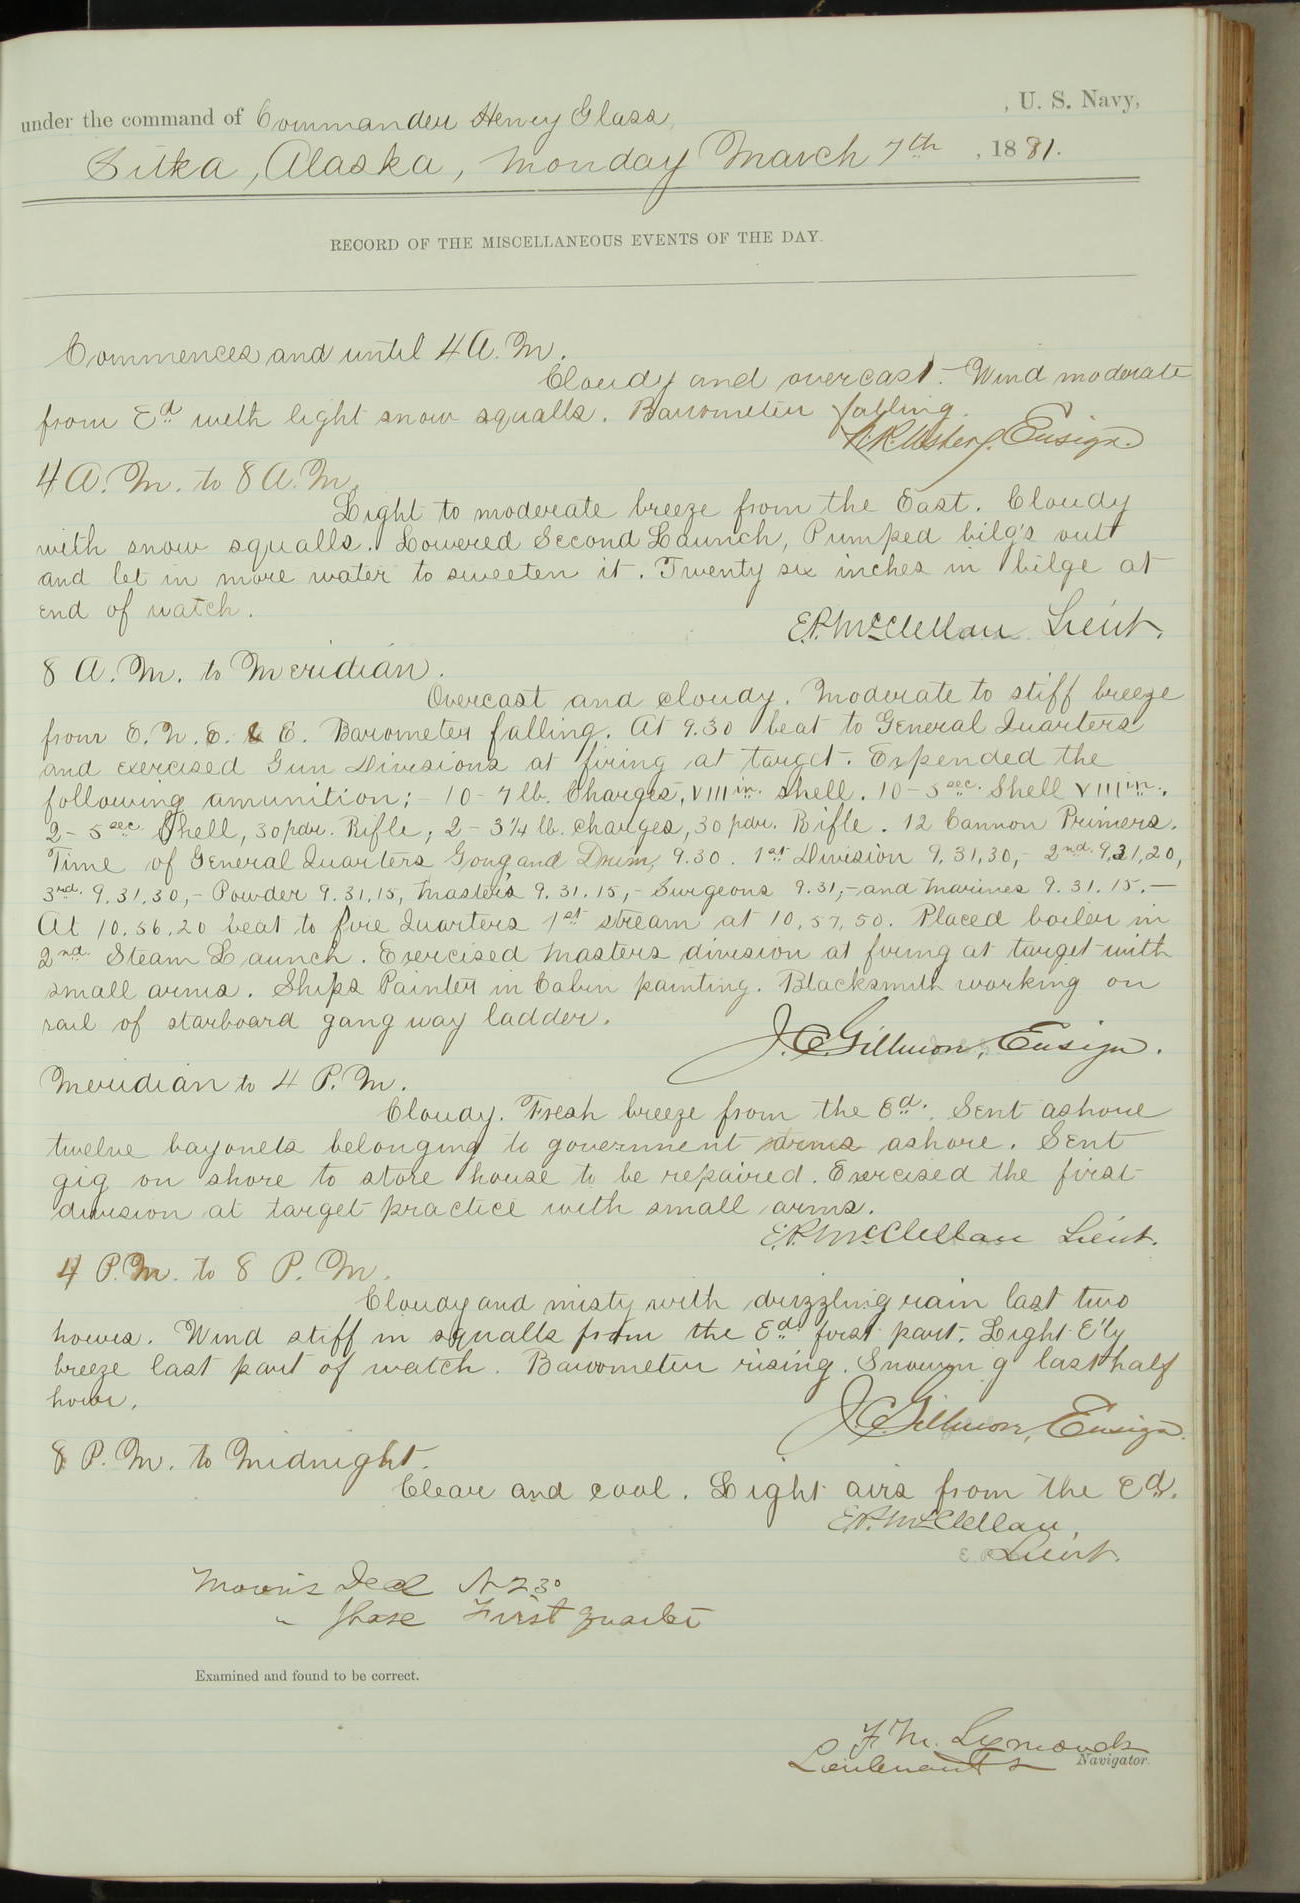 under the command of Commander Henry Glass, , U. S. Navy,
Sitka, Alaska, Monday March 7th , 1881.
RECORD OF THE MISCELLANEOUS EVENTS OF THE DAY.
Commences and until 4 A. M.
Cloudy and overcast. Wind moderate
from Ed with light snow squalls. Barometer falling.
Usher, Ensign.
4 A. M. to 8 A. M.
Light to moderate breeze from the East. Cloudy
with snow squalls. Lowered Second Launch, Pumped bilg's out
and let in more water to sweeten it. Twenty six inches in bilge at
end of watch.
E.P. McClellan Lieut.
8 A. M. to Meridian.
Overcast and cloudy. Moderate to stiff breeze
from E. N. E. & E. Barometer falling. At 9.30 beat to General Quarters
and exercised Gun Divisions at firing at target. Expended the
following amunition; - 10 - 7 lb. Charges, VIII in. shell. 10 - 5 sec. Shell VIII in.,
2 - 5 sec. Shell, 30 pdr. Rifle; 2 - 3¼ lb. charges, 30 pdr. Rifle. 12 Cannon Primers.
Time of General Quarters Gong and Drum, 9.30. 1st Division 9,31,30, - 2nd. 9,31,20,
3rd. 9.31.30, - Powder 9.31.15, Master's 9.31.15, - Surgeons 9.31, - and Marines 9.31.15. -
At 10.56.20 beat to fire Quarters 1st stream at 10,57,50. Placed boiler in
2nd. Steam Launch. Exercised Masters division at firing at target with
small arms. Ships Painter in Cabin painting. Blacksmith working on
rail of starboard gangway ladder.
J.C. Gillmor, Ensign.
Meridian to 4 P. M.
Cloudy. Fresh breeze from the Ed. Sent ashore
twelve bayonets belonging to government arms ashore. Sent
gig on shore to store house to be repaired. Exercised the first
division at target practice with small arms.
E.P. McClellan Lieut.
4 P. M. to 8 P. M.
Cloudy and misty with drizzling rain last two
hours. Wind stiff in squalls from the Ed. first part. Light E'ly
breeze last part of watch. Barometer rising. Snowing last half
hour.
J.C. Gillmor, Ensign.
8 P. M. to Midnight.
Clear and cool. Light airs from the Ed.
E.P. McClellan,
Lieut.
Moon's Decl N 23°
" Phase First Quarter
Examined and found to be correct.
F. M. Symonds
Lieutenant Navigator.